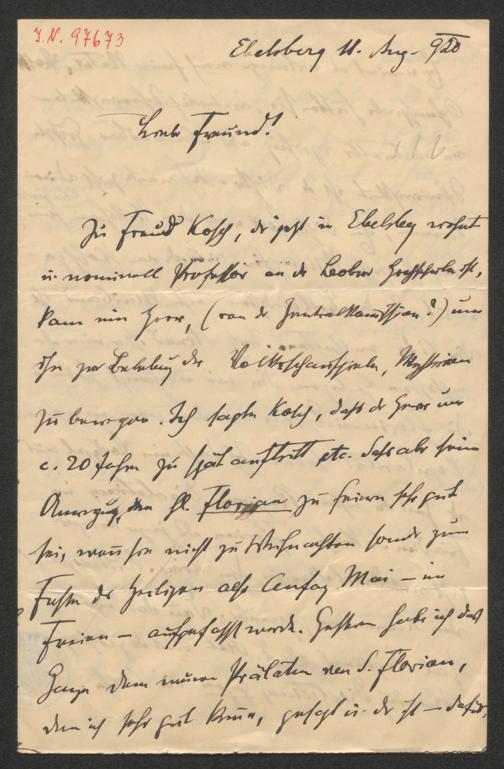 I.N. 97673
Ebelsberg 11. Aug. 920
Lieber Freund!
Zu Freund Kosch, der jetzt in Ebelsberg wohnt
u. nominell Professor an der Leobner Hochschule ist,
kam ein Herr, (von der Zentralkommission?) um
ihn zur Belebung der Volksschauspiele, Mysterien
zu bewegen. Ich sagte Kosch, daß der Herr um
c. 20 Jahre zu spät auftritt etc. daß aber seine
Anregung, den hl. Florian zu feiern sehr gut
sei, wenn sie nicht zu Weihnachten sondern zum
Feste des Heiligen also Anfang Mai – im
Freien – aufgefasst werde. Gestern habe ich das
Ganze dem neuen Prälaten von S. Florian,
den ich sehr gut kenne, gesagt u. der ist – dafür,